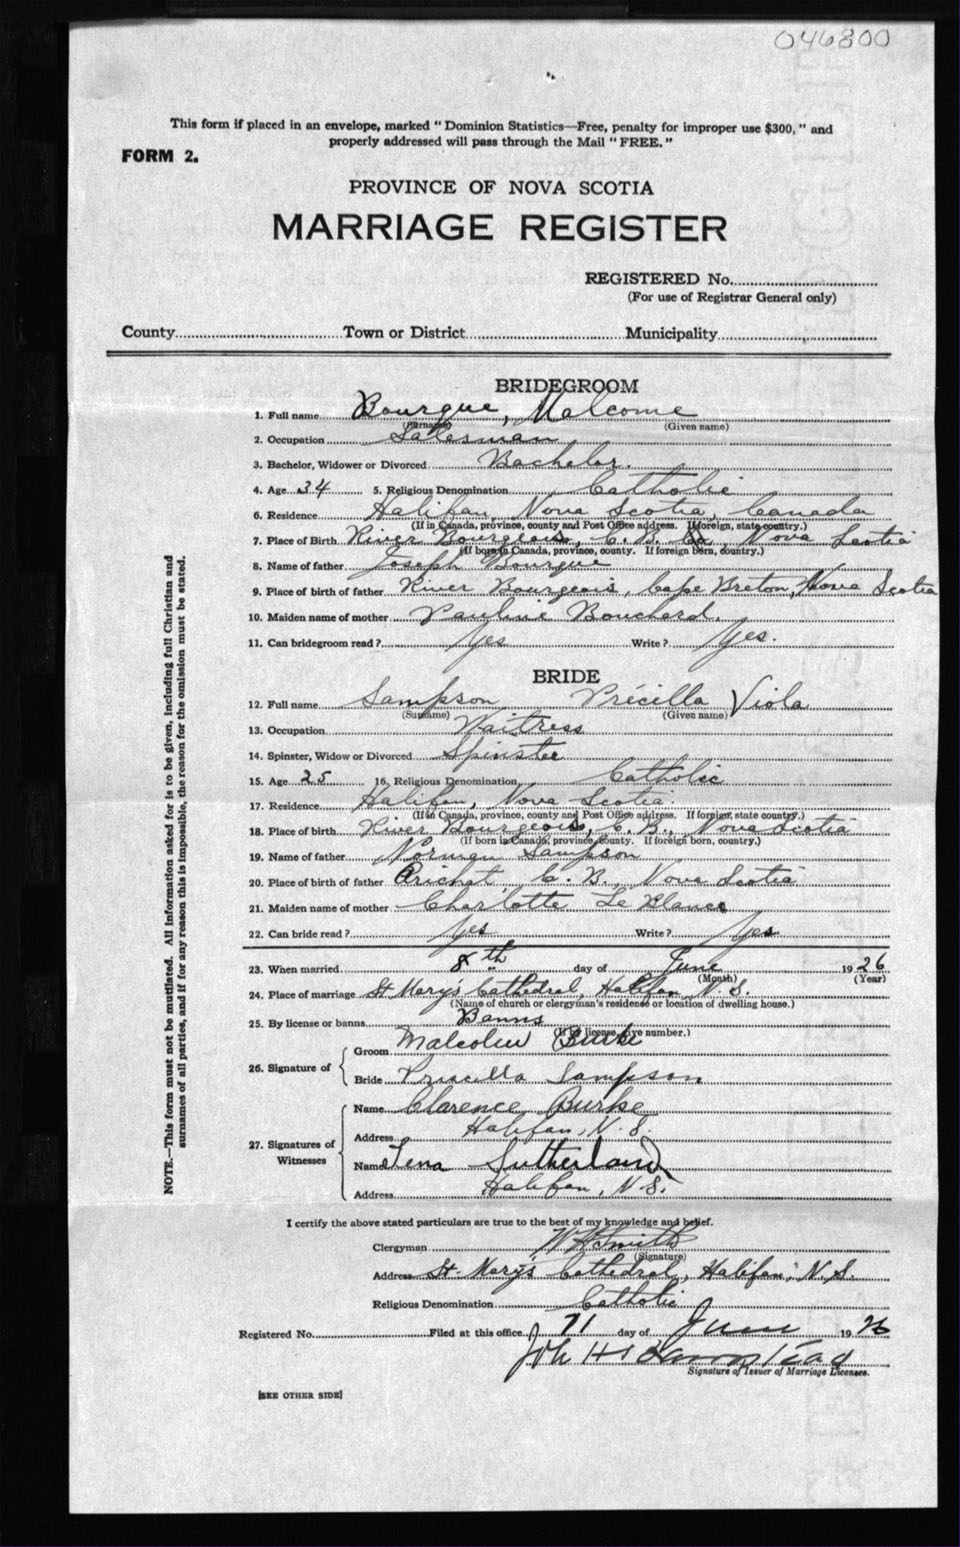 046800
This form if placed in an envelope, marked "Dominion Statistics—Free, penalty for improper use $300," and
properly addressed will pass through the Mail "FREE."
FORM 2.
PROVINCE OF NOVA SCOTIA
MARRIAGE REGISTER
REGISTERED No.
(For use of Registrar General only)
County Town or District Municipality
BRIDEGROOM
1. Full name Bourque, Malcome
(Surname) (Given name)
2. Occupation Salesman
3. Bachelor, Widower or Divorced Bachelor.
4. Age 34 5. Religious Denomination Catholic
6. Residence Halifax, Nova Scotia, Canada
(If in Canada, province, county and Post Office address. If foreign, state country.)
7. Place of Birth River Bourgeois, C. B. Nova Scotia
(If born in Canada, province, county. If foreign born, country.)
8. Name of father Joseph Bourque
9. Place of birth of father River Bourgeois, Cape Breton, Nova Scotia
10. Maiden name of mother Pauline Bouchard.
11. Can bridegroom read? Yes Write? Yes.
BRIDE
12. Full name Sampson Précilla Viola
(Surname) (Given name)
13. Occupation Waitress
14. Spinster, Widow or Divorced Spinster
15. Age 25 16. Religious Denomination Catholic
17. Residence Halifax, Nova Scotia.
(If in Canada, province, county and Post Office address. If foreign, state country.)
18. Place of birth River Bourgeois, C. B., Nova Scotia
(If born in Canada, province, county. If foreign born, country.)
19. Name of father Norman Sampson
20. Place of birth of father Arichat, C. B., Nova Scotia
21. Maiden name of mother Charlotte Le Blanc
22. Can bride read? Yes Write? Yes
23. When married 8th day of June 1926
(Month) (Year)
24. Place of marriage St Mary's Cathedral, Halifax, N. S.
(Name of church or clergyman's residence or location of dwelling house.)
25. By license or banns Banns
(If by license, give number.)
26. Signature of
Groom Malcolm Burke
Bride Priscilla Sampson
27. Signatures of Witnesses
Name Clarence Burke
Address Halifax, N. S.
Name Lena Sutherland
Address Halifax, N. S.
I certify the above stated particulars are true to the best of my knowledge and belief.
Clergyman W H Smith
(Signature)
Address St. Mary's Cathedral, Halifax, N. S.
Religious Denomination Catholic
Registered No. Filed at this office 11 day of June 1926
Signature of Issuer of Marriage Licenses.
[SEE OTHER SIDE]
NOTE.—This form must not be mutilated. All information asked for is to be given, including full Christian and
surnames of all parties, and if for any reason this is impossible, the reason for the omission must be stated.